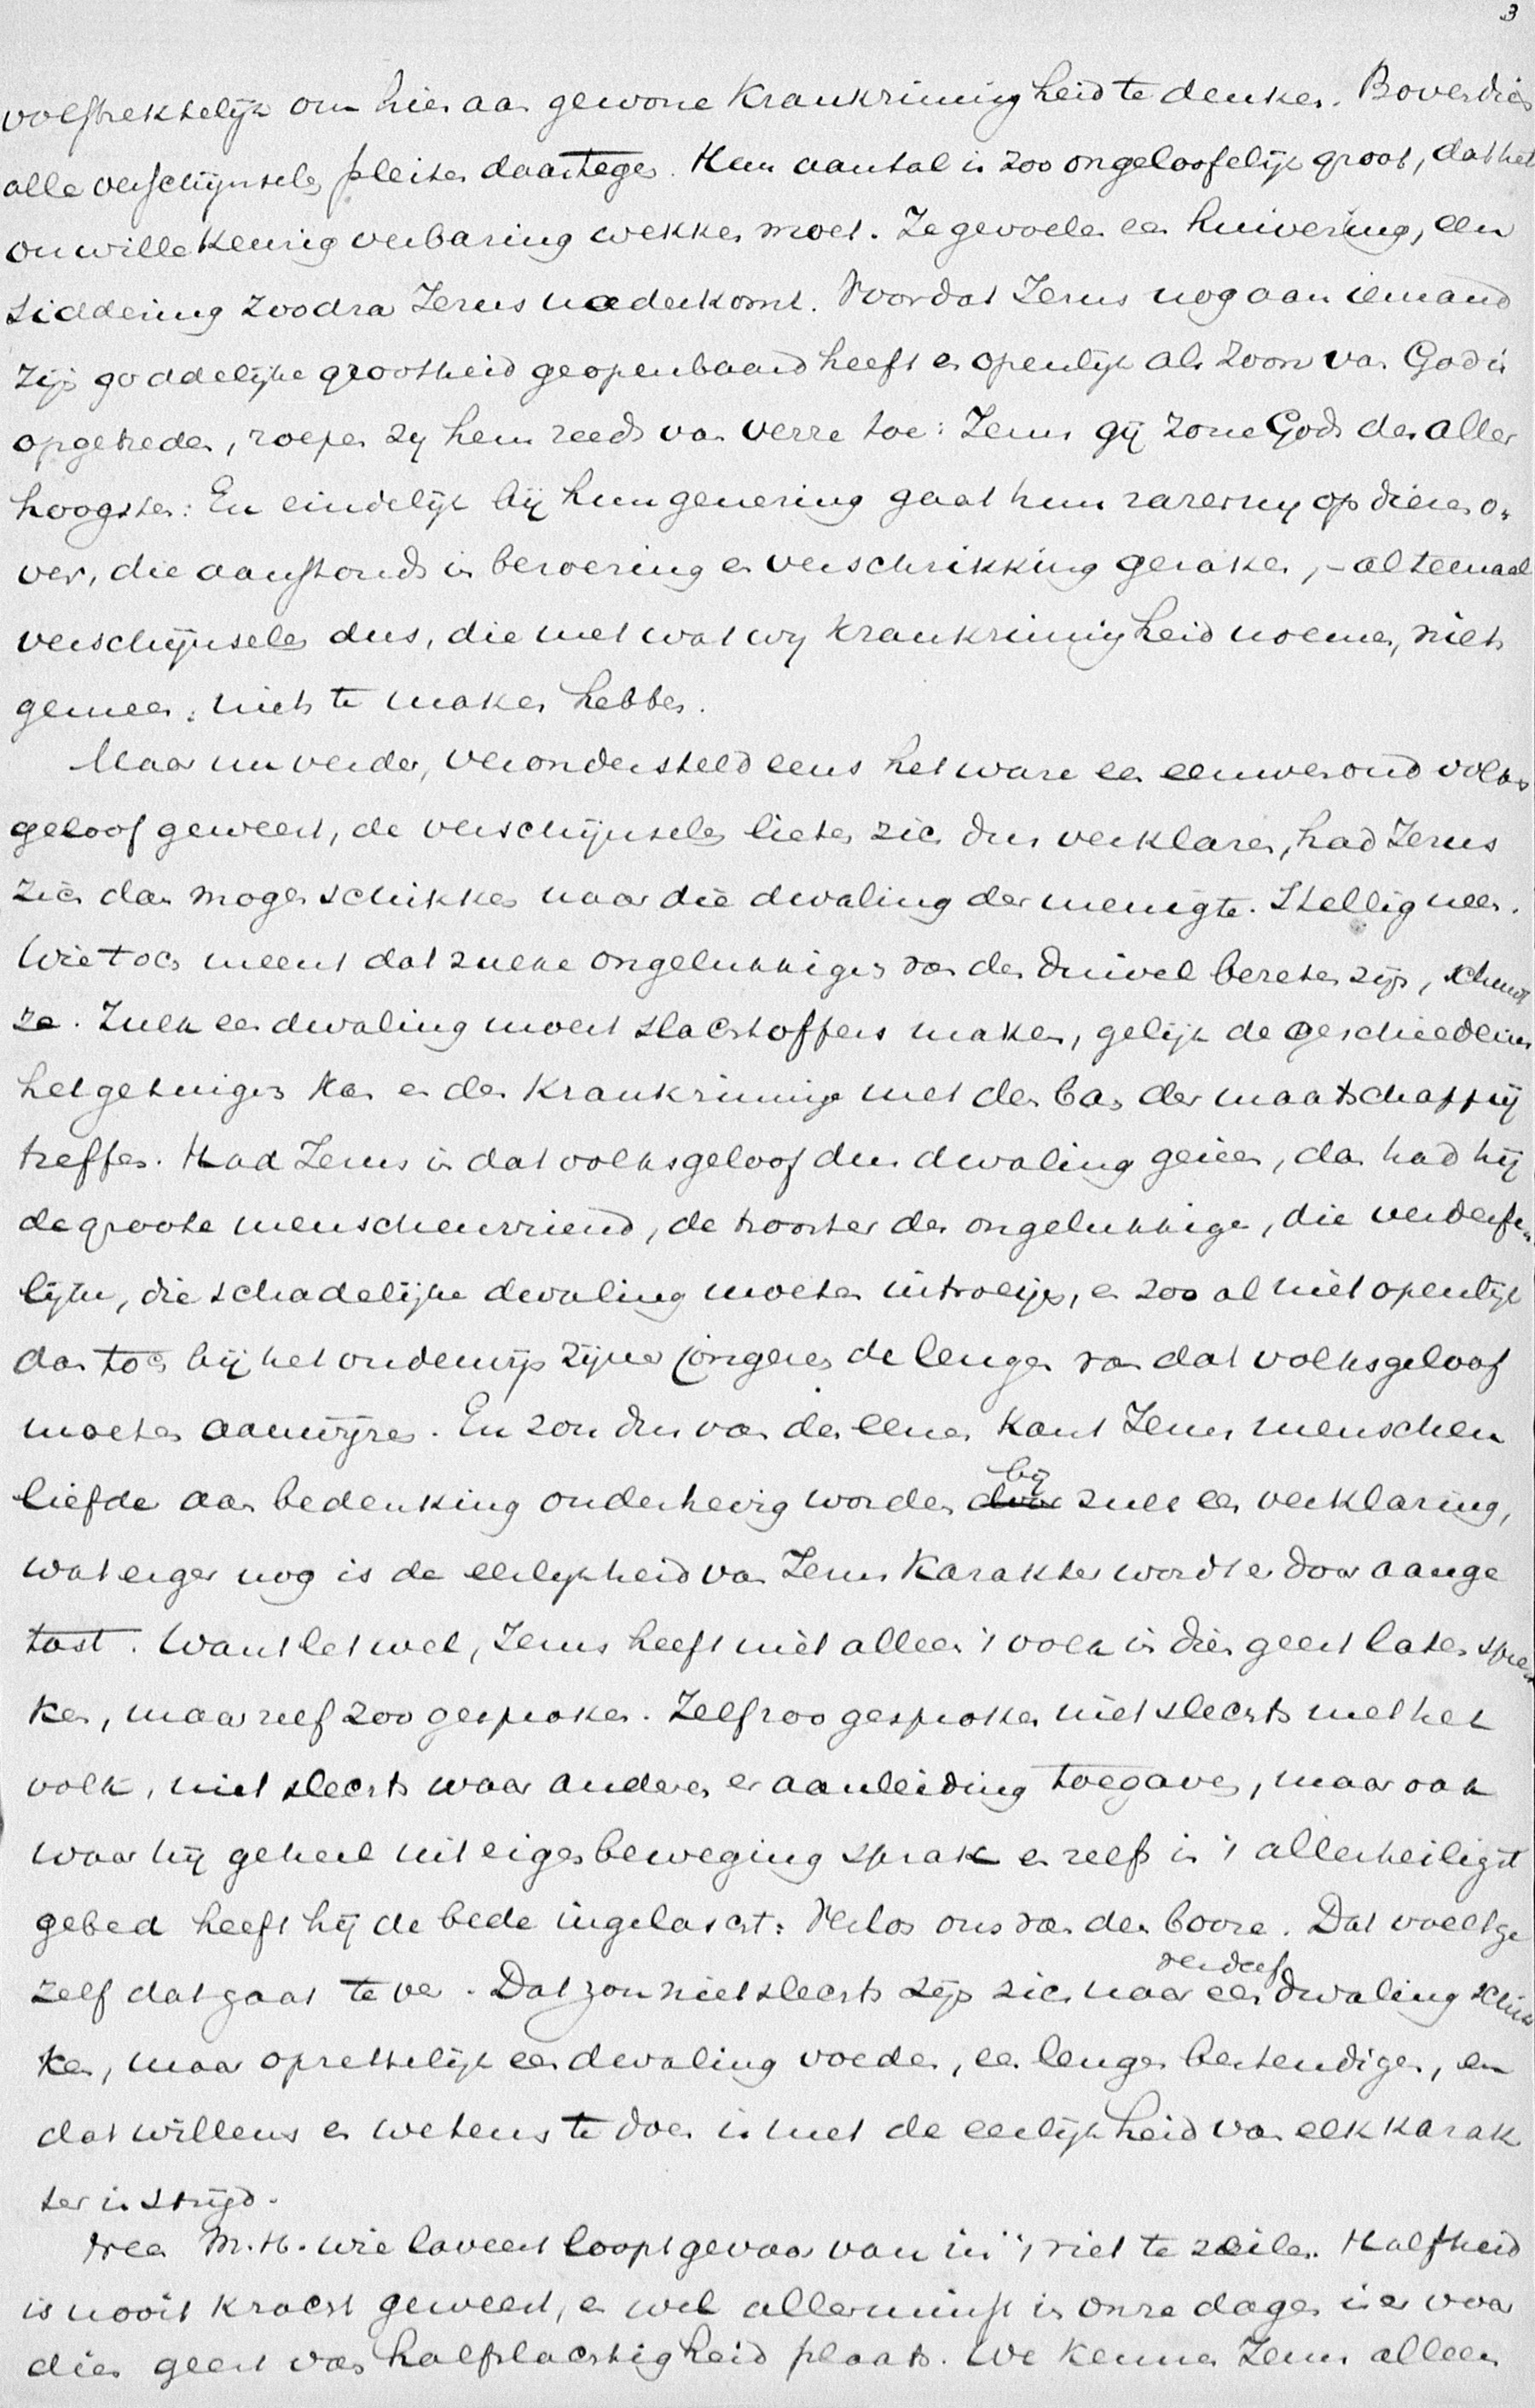 3
volstrektelijk om hier aan gewone krankzinnigheid te denken. Bovendien
alle verschijnselen pleiten daartegen. Hun aantal is zoo ongeloofelijk groot, dat het
onwillekeurig verbazing wekken moet. Ze gevoelen een huivering, een
siddering zoodra Jezus naderkomt. Voordat Jezus nog aan iemand
zijn goddelijke grootheid geopenbaard heeft en openlijk als Zoon van God is
opgetreden, roepen zy hem reeds van verre toe: Jezus gij Zone Gods des aller
hoogsten: En eindelijk bij hun genezing gaat hun razerny op dieren o-
ver, die aanstonds in beroering en verschrikking geraken, - altemaal
verschijnselen dus, die met wat wy krankzinnigheid noemen, niets
gemeen, niets te maken hebben.
Maar nu verder, verondersteld eens het ware een eeuwenoud volks
geloof geweest, de verschijnselen lieten zich dus verklaren, had Jezus
zich dan mogen schikken naar die dwaling der menigte. Stellig neen.
Wie toch meent dat zulke ongelukkigen van den duivel bezeten zijn, schuwt
ze. Zulk een dwaling moest slachtoffers maken, gelijk de geschiedenis
het getuigen kan en den krankzinnige met den ban der maatschappij
treffen. Had Jezus in dat volksgeloof dus dwaling gezien, dan had hij
de groote menschenvriend, de trooster der ongelukkigen, die verderfe-
lijke, die schadelijke dwaling moeten uitroeijen, en zoo al niet openlijk
dan toch bij het onderwijs zijner jongeren de leugen van dat volksgeloof
moeten aanwijzen. En zou dus van den eenen kant Jezus menschen
liefde aan bedenking onderhevig worden door bij zulk een verklaring,
wat erger nog is de eerlijkheid van Jezus karakter wordt er door aange
tast. Want let wel, Jezus heeft niet alleen 't volk in dien geest laten spre
ken, maar zelf zoo gesproken. Zelf zoo gesproken niet slechts met het
volk, niet slechts waar anderen er aanleiding toe gaven, maar ook
waar hij geheel uit eigen beweging sprak en zelfs in 't allerheiligst
gebed heeft hij de bede ingelascht: Verlos ons van den booze. Dat voelt ge
zelf dat gaat te ver. Dat zou niet slechts zijn zich naar een verderf dwaling schik
ken, maar oprettelijk een dwaling voeden, een leugen bestendigen, en
dat willens en wetens te doen is met de eerlijkheid van elk karak
ter in strijd.
Neen M.H. wie laveert loopt gevaar van in 't riet te zeilen. Halfheid
is nooit kracht geweest, en wel allerminst in onze dagen is er voor
dien geest van halfslachtigheid plaats. We kennen Jezus alleen